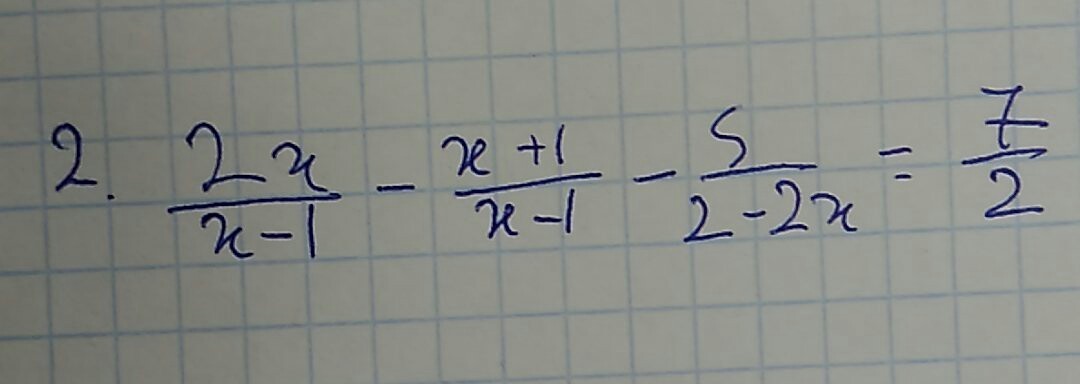 2. 2x/(x-1) - (x+1)/(x-1) - 5/(2-2x) = 7/2